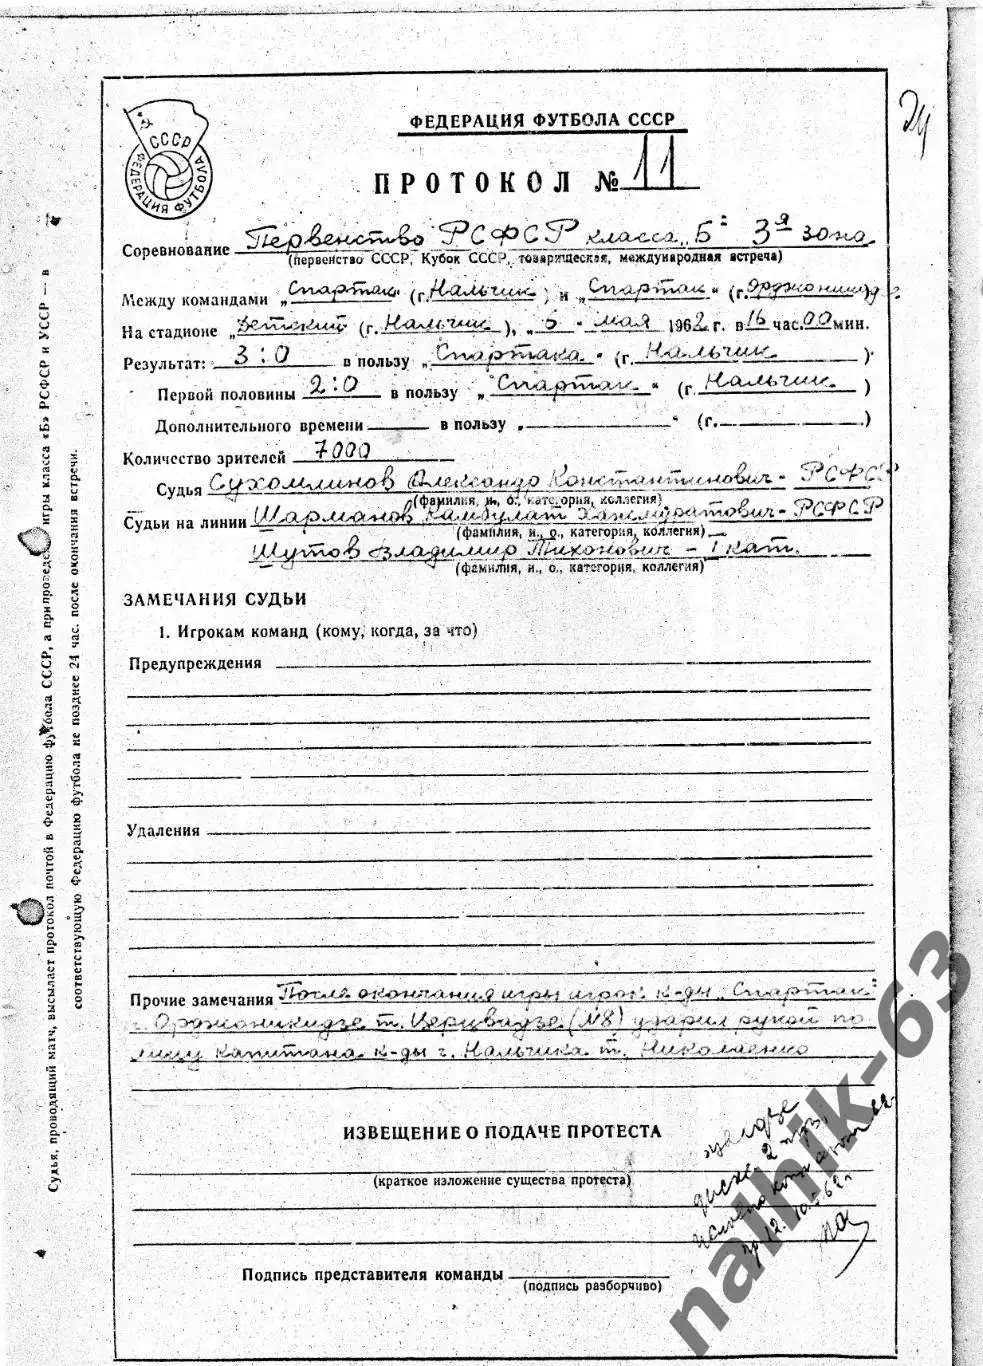 24
СССР
ФЕДЕРАЦИЯ ФУТБОЛА
ФЕДЕРАЦИЯ ФУТБОЛА СССР
ПРОТОКОЛ № 11
Соревнование Первенство РСФСР класса „Б“ 3я зона
(первенство СССР, Кубок СССР, товарищеская, международная встреча)
Между командами „Спартак“ (г. Нальчик) и „Спартак“ (г. Орджоникидзе
На стадионе „Детский“ (г. Нальчик), „6“ мая 1962 г. в 16 час. 00 мин.
Результат: 3:0 в пользу „Спартака“ (г. Нальчик)
Первой половины 2:0 в пользу „Спартак“ (г. Нальчик)
Дополнительного времени в пользу „ “ (г. )
Количество зрителей 7000
Судья Сухомлинов Александр Константинович - РСФСР
(фамилия, и., о., категория, коллегия)
Судьи на линии Шарманов Камбулат Хажмуратович - РСФСР
(фамилия, и., о., категория, коллегия)
Шутов Владимир Тихонович - I кат.
(фамилия, и., о., категория, коллегия)
ЗАМЕЧАНИЯ СУДЬИ
1. Игрокам команд (кому, когда, за что)
Предупреждения
Удаления
Прочие замечания После окончания игры игрок к-ды „Спартак“
г. Орджоникидзе т. Церцвадзе (№8) ударил рукой по
лицу капитана к-ды г. Нальчика т. Николаенко
ИЗВЕЩЕНИЕ О ПОДАЧЕ ПРОТЕСТА
(краткое изложение существа протеста)
Подпись представителя команды
(подпись разборчиво)
Судья, проводящий матч, высылает протокол почтой в Федерацию футбола СССР, а при проведении игры класса «Б» РСФСР и УССР — в
соответствующую Федерацию футбола не позднее 24 час. после окончания встречи.
nalhik-63